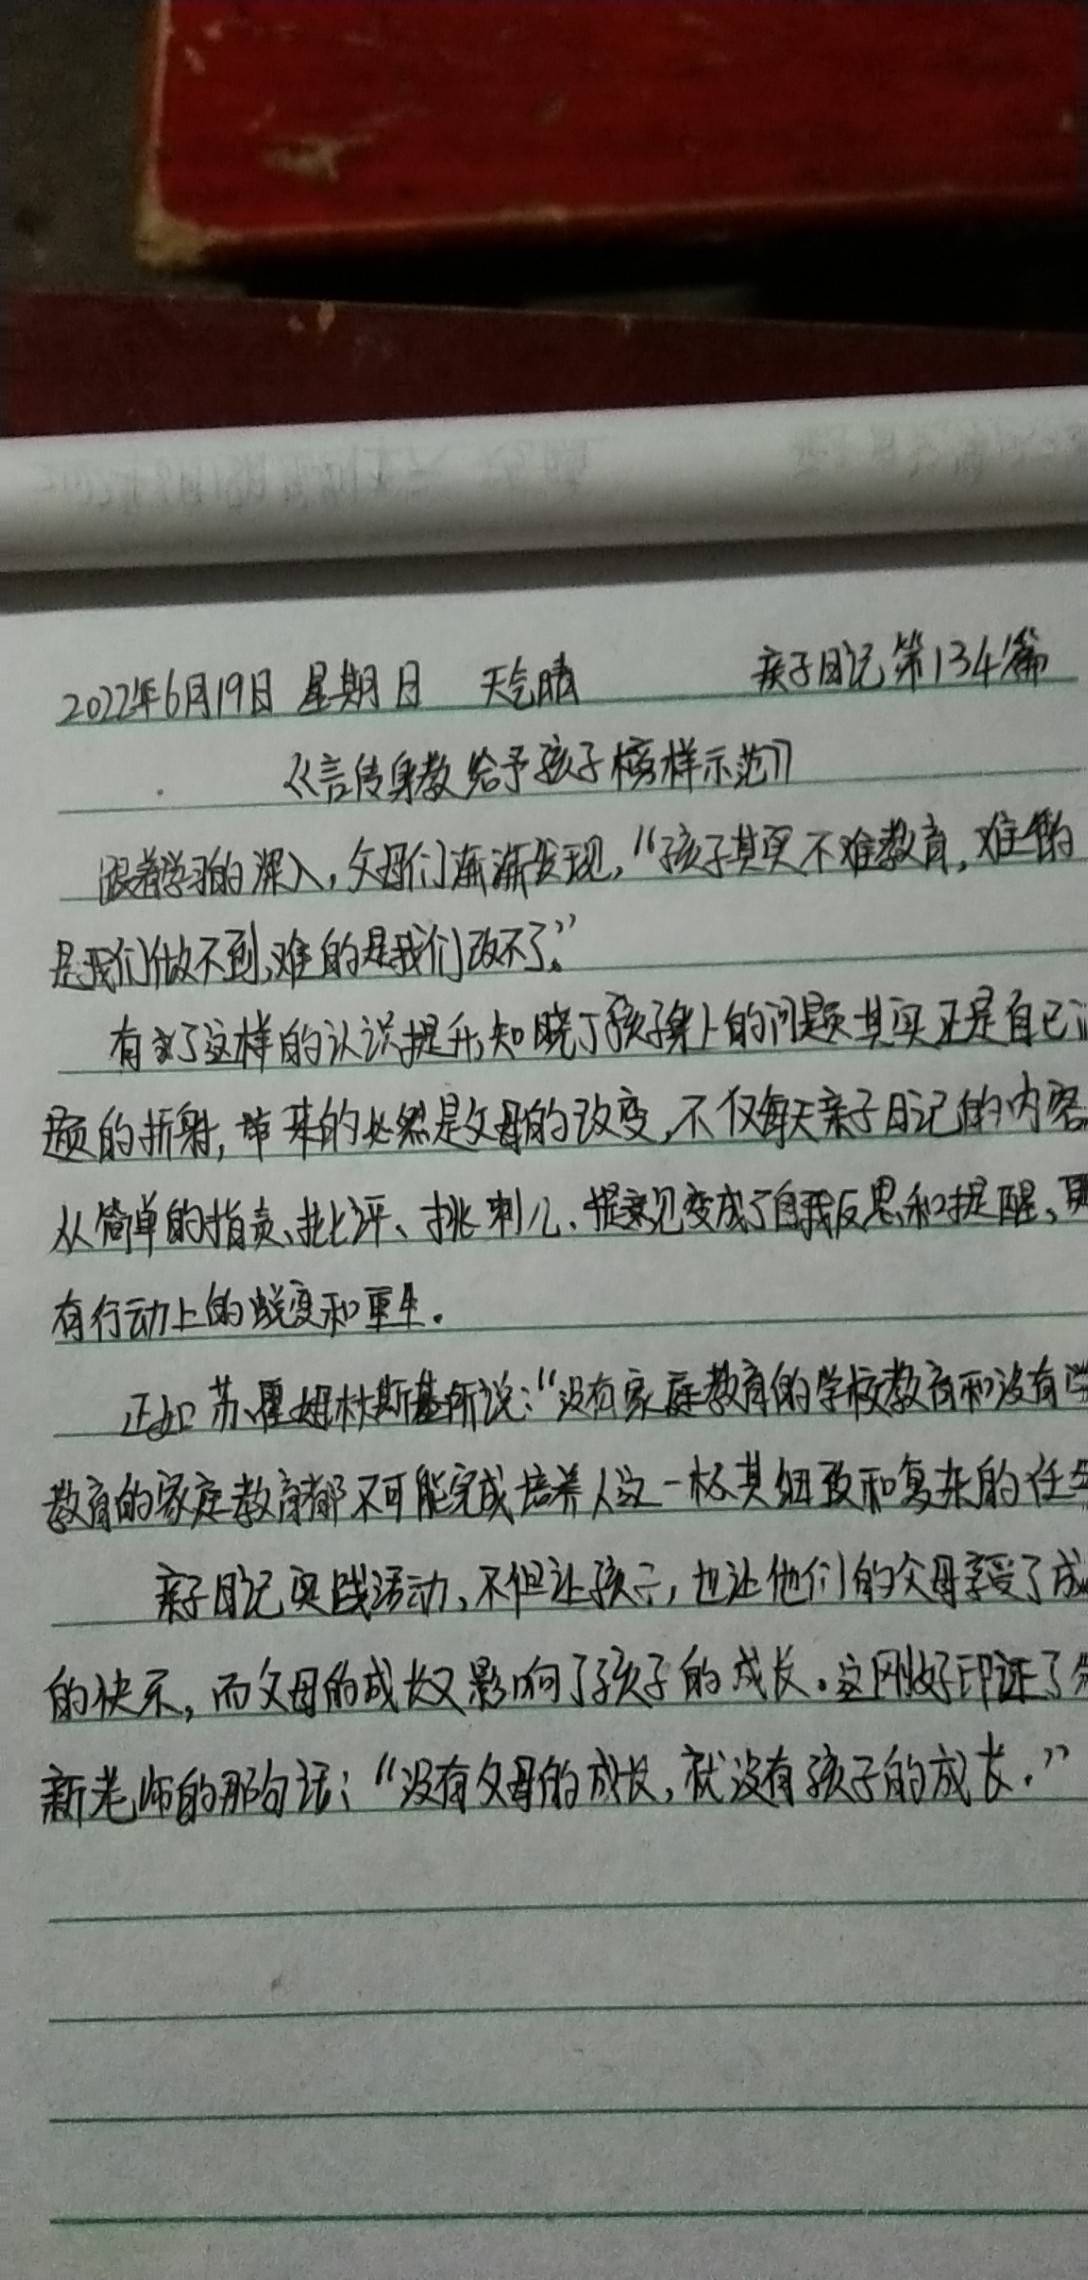 2022年6月19日 星期日 天气晴 亲子日记第134篇
《言传身教给予孩子榜样示范》
跟着学习的深入,父母们渐渐发现,“孩子其实不难教育,难的
是我们做不到,难的是我们改不了。”
有了这样的认识提升,知晓了孩子身上的问题其实正是自己
题的折射,带来的必然是父母的改变,不仅每天亲子日记的内容
从简单的指责、批评、挑刺儿、提意见变成了自我反思和提醒、更
有行动上的蜕变和重生。
正如苏霍姆林斯基所说:“没有家庭教育的学校教育和没有学
教育的家庭教育都不可能完成培养人这一极其细致和复杂的任务
亲子日记实践活动,不但让孩子,也让他们的父母享受了成
的快乐,而父母的成长又影响了孩子的成长。这刚好印证了
新老师的那句话:“没有父母的成长,就没有孩子的成长.”